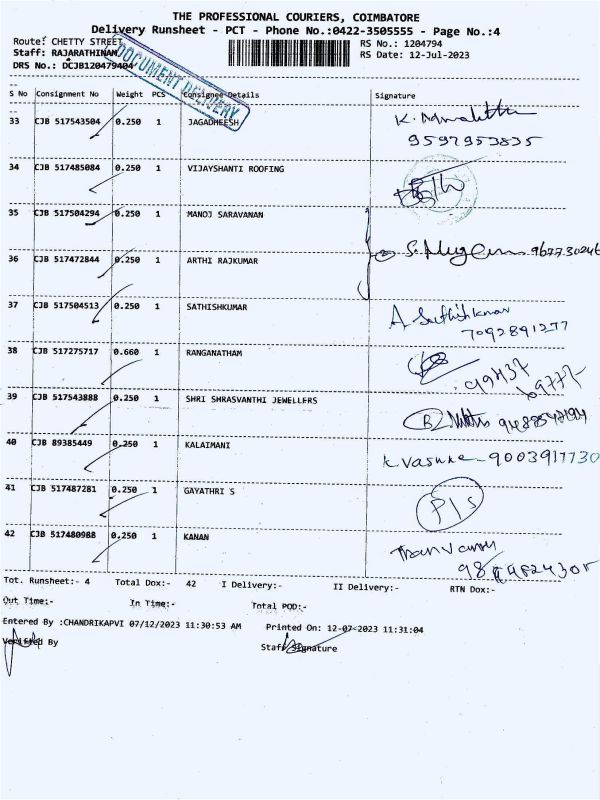 THE PROFESSIONAL COURIERS, COIMBATORE
Delivery Runsheet - PCT - Phone No.:0422-3505555 - Page No.:4
Route: CHETTY STREET
RS No.: 1204794
Staff: RAJARATHINAM
RS Date: 12-Jul-2023
DRS No.: DCJB120479404
DOCUMENT DELIVERY
S No Consignment No Weight PCS Consignee Details Signature
33 CJB 517543504 0.250 1 JAGADHEESH
9597953835
34 CJB 517485084 0.250 1 VIJAYSHANTI ROOFING
35 CJB 517504294 0.250 1 MANOJ SARAVANAN
36 CJB 517472844 0.250 1 ARTHI RAJKUMAR
37 CJB 517504513 0.250 1 SATHISHKUMAR A Sathishkumar
7092891277
38 CJB 517275717 0.660 1 RANGANATHAM
39 CJB 517543888 0.250 1 SHRI SHRASVANTHI JEWELLERS
40 CJB 89385449 0.250 1 KALAIMANI 9003917730
41 CJB 517487281 0.250 1 GAYATHRI S P/S
42 CJB 517480988 0.250 1 KANAN
Tot. Runsheet:- 4 Total Dox:- 42 I Delivery:- II Delivery:- RTN Dox:-
Out Time:- In Time:- Total POD:-
Entered By :CHANDRIKAPVI 07/12/2023 11:30:53 AM Printed On: 12-07-2023 11:31:04
Verified By Staff Signature